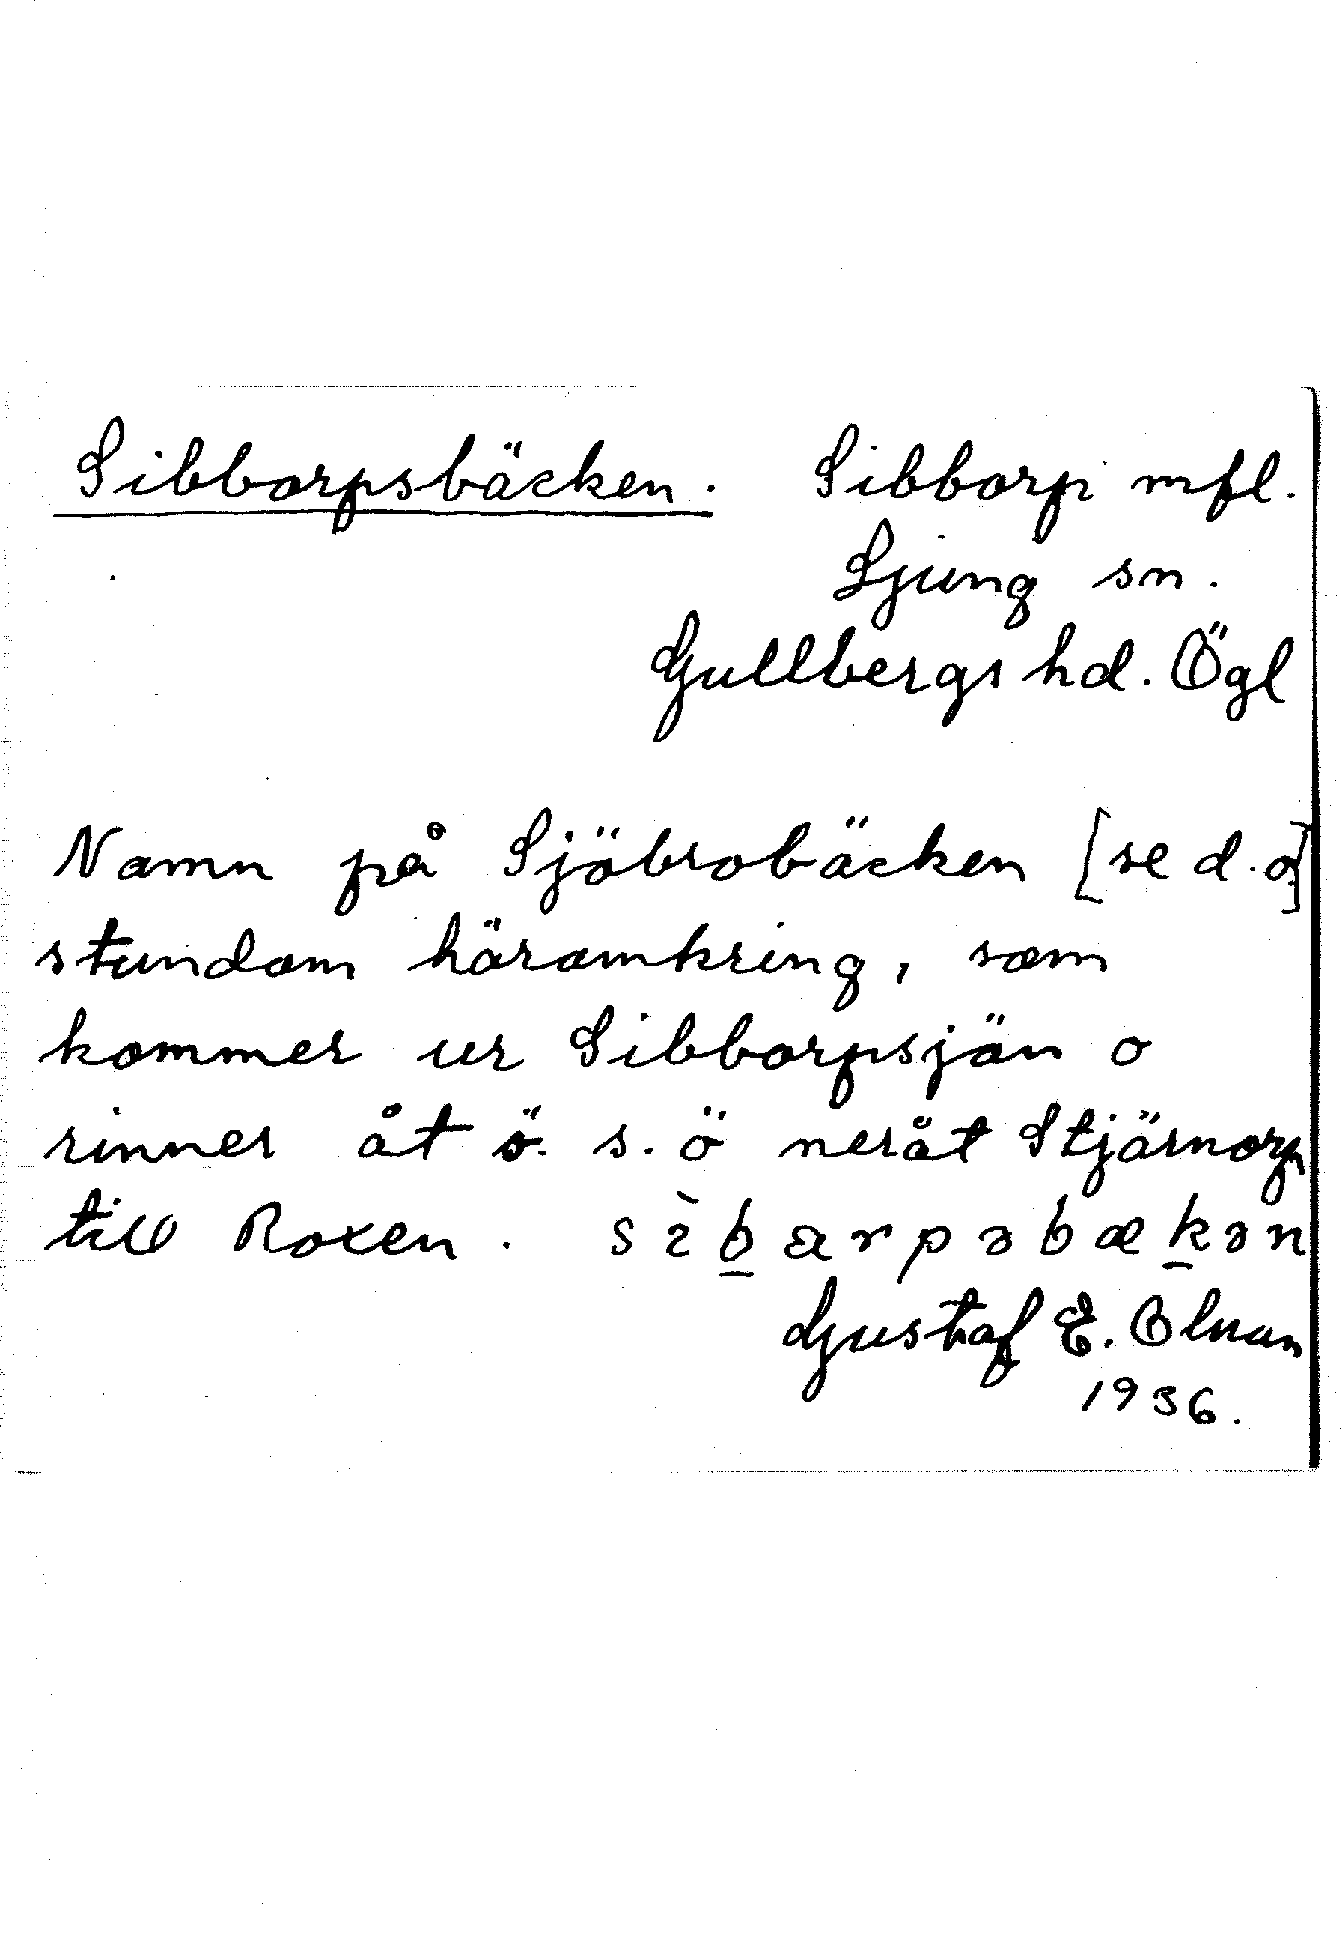 Sibborpsbäcken. Sibborp mfl.
Ljung sn.
Gullbergs hd. Ögl
Namn på Sjöbrobäcken [se d.o]
stundom häromkring, som
kommer ur Sibborpsjön o
rinner åt ö. s. ö neråt Stjärnorp
till Roxen. sìb̲arpəbæk̲ən
Gustaf E. Olman
1936.